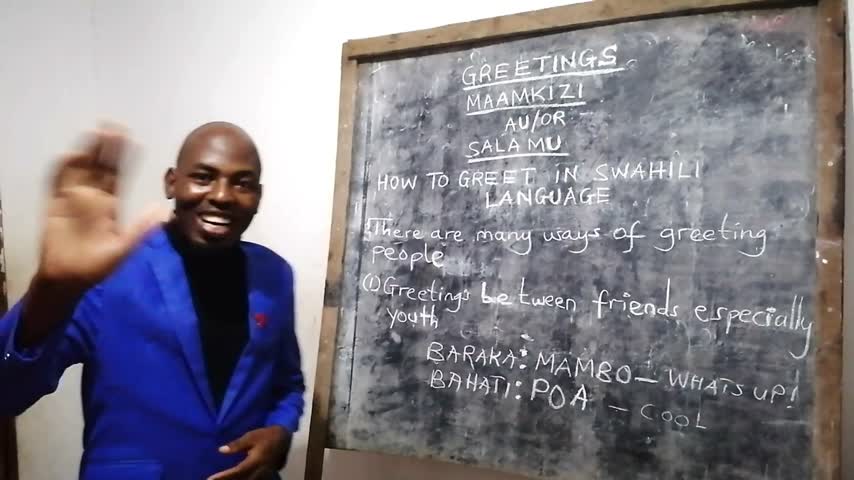 GREETINGS
MAAMKIZI
AU/OR
SALAMU
HOW TO GREET IN SWAHILI
LANGUAGE
There are many ways of greeting
people
(1) Greetings between friends especially
youth
BARAKA: MAMBO – WHATS UP!
BAHATI: POA – COOL